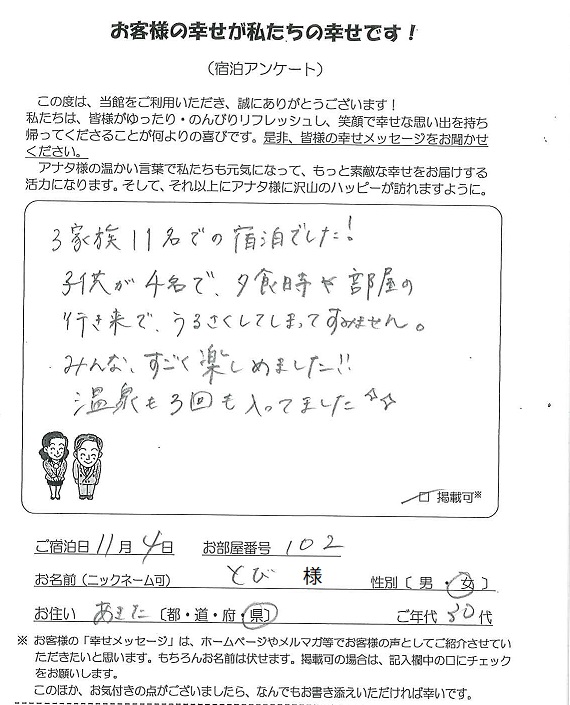 お客様の幸せが私たちの幸せです！
（宿泊アンケート）
この度は、当館をご利用いただき、誠にありがとうございます！
私たちは、皆様がゆったり・のんびりリフレッシュし、笑顔で幸せな思い出を持ち
帰ってくださることが何よりの喜びです。是非、皆様の幸せメッセージをお聞かせ
ください。
アナタ様の温かい言葉で私たちも元気になって、もっと素敵な幸せをお届けする
活力になります。そして、それ以上にアナタ様に沢山のハッピーが訪れますように。
3家族11名での宿泊でした！
子供が4名で、夕食時や部屋の
行き来で、うるさくしてしまってすみません。
みんな、すごく楽しめました!!
温泉も3回も入ってました☆☆
□ 掲載可※
ご宿泊日 11月4日 お部屋番号 102
お名前（ニックネーム可） とび 様 性別〔 男 ・ 女 〕
お住い あきた〔都・道・府・県〕 ご年代 30代
※ お客様の「幸せメッセージ」は、ホームページやメルマガ等でお客様の声としてご紹介させてい
ただきたいと思います。もちろんお名前は伏せます。掲載可の場合は、記入欄中の口にチェック
をお願いします。
このほか、お気付きの点がございましたら、なんでもお書き添えいただければ幸いです。